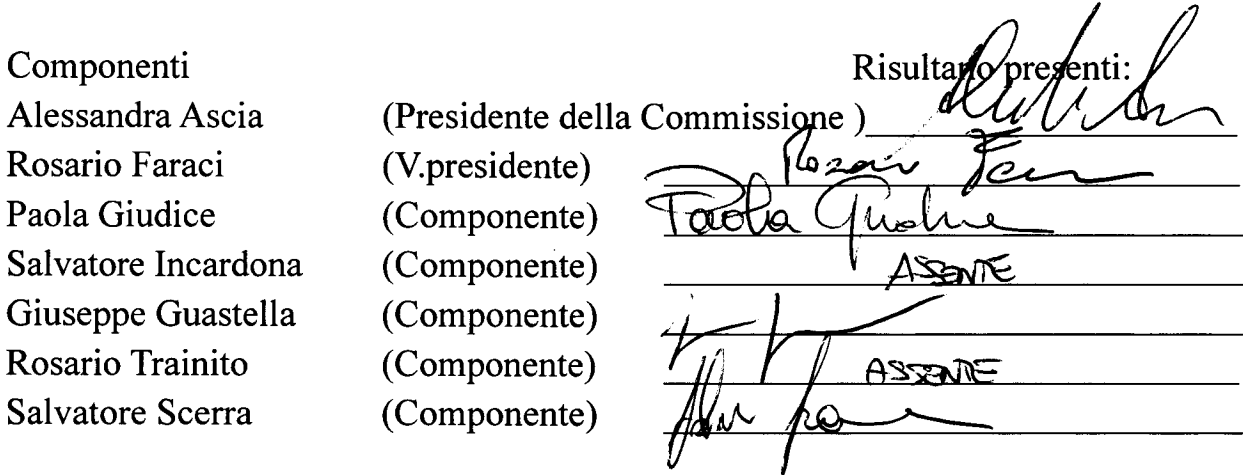 Componenti Risultano presenti:
Alessandra Ascia (Presidente della Commissione )
Rosario Faraci (V.presidente)
Paola Giudice (Componente) Paola Giudice
Salvatore Incardona (Componente) ASSENTE
Giuseppe Guastella (Componente)
Rosario Trainito (Componente) ASSENTE
Salvatore Scerra (Componente)